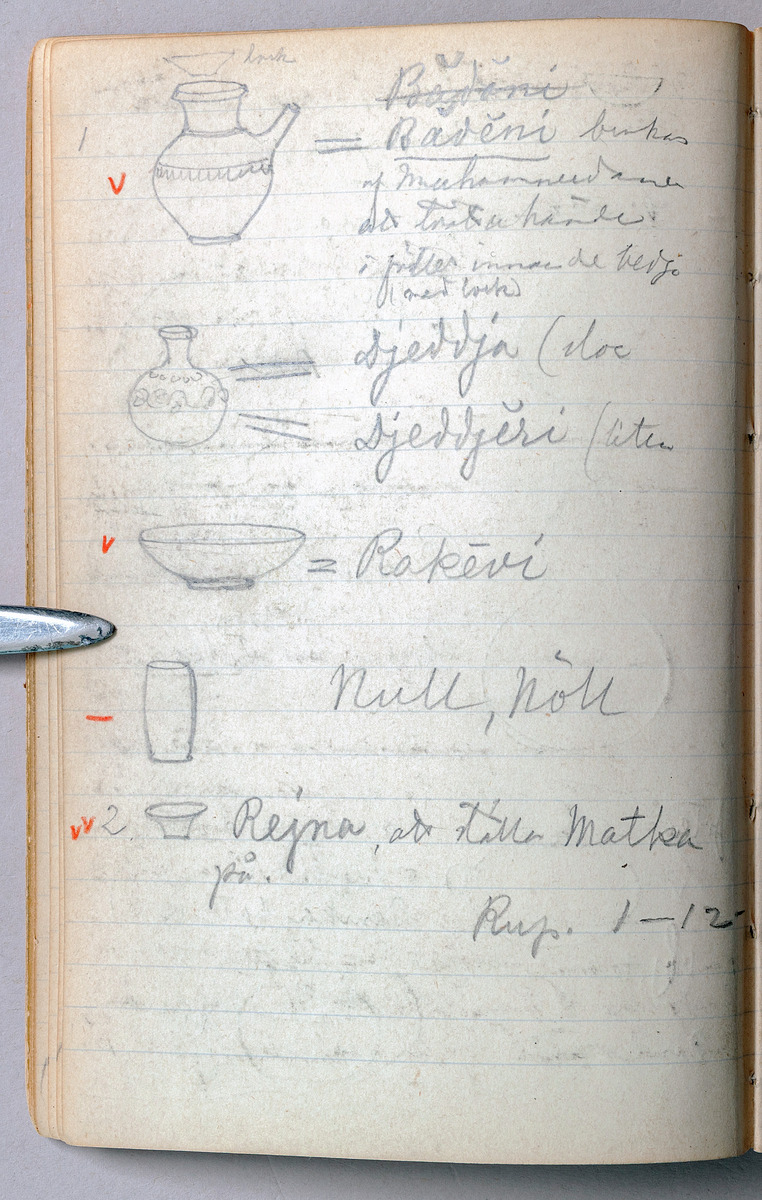 lock
Bădĕni
1 = Bădĕni brukas
af Muhammedaner
att tvätta händer
o fötter innan de bedja
(med lock)
= Djeddja (stor
= Djeddjĕri (liten
= Rakēvi
Null, Nöll
2. Rejna, att ställa Matka
på.
Rup. 1—12